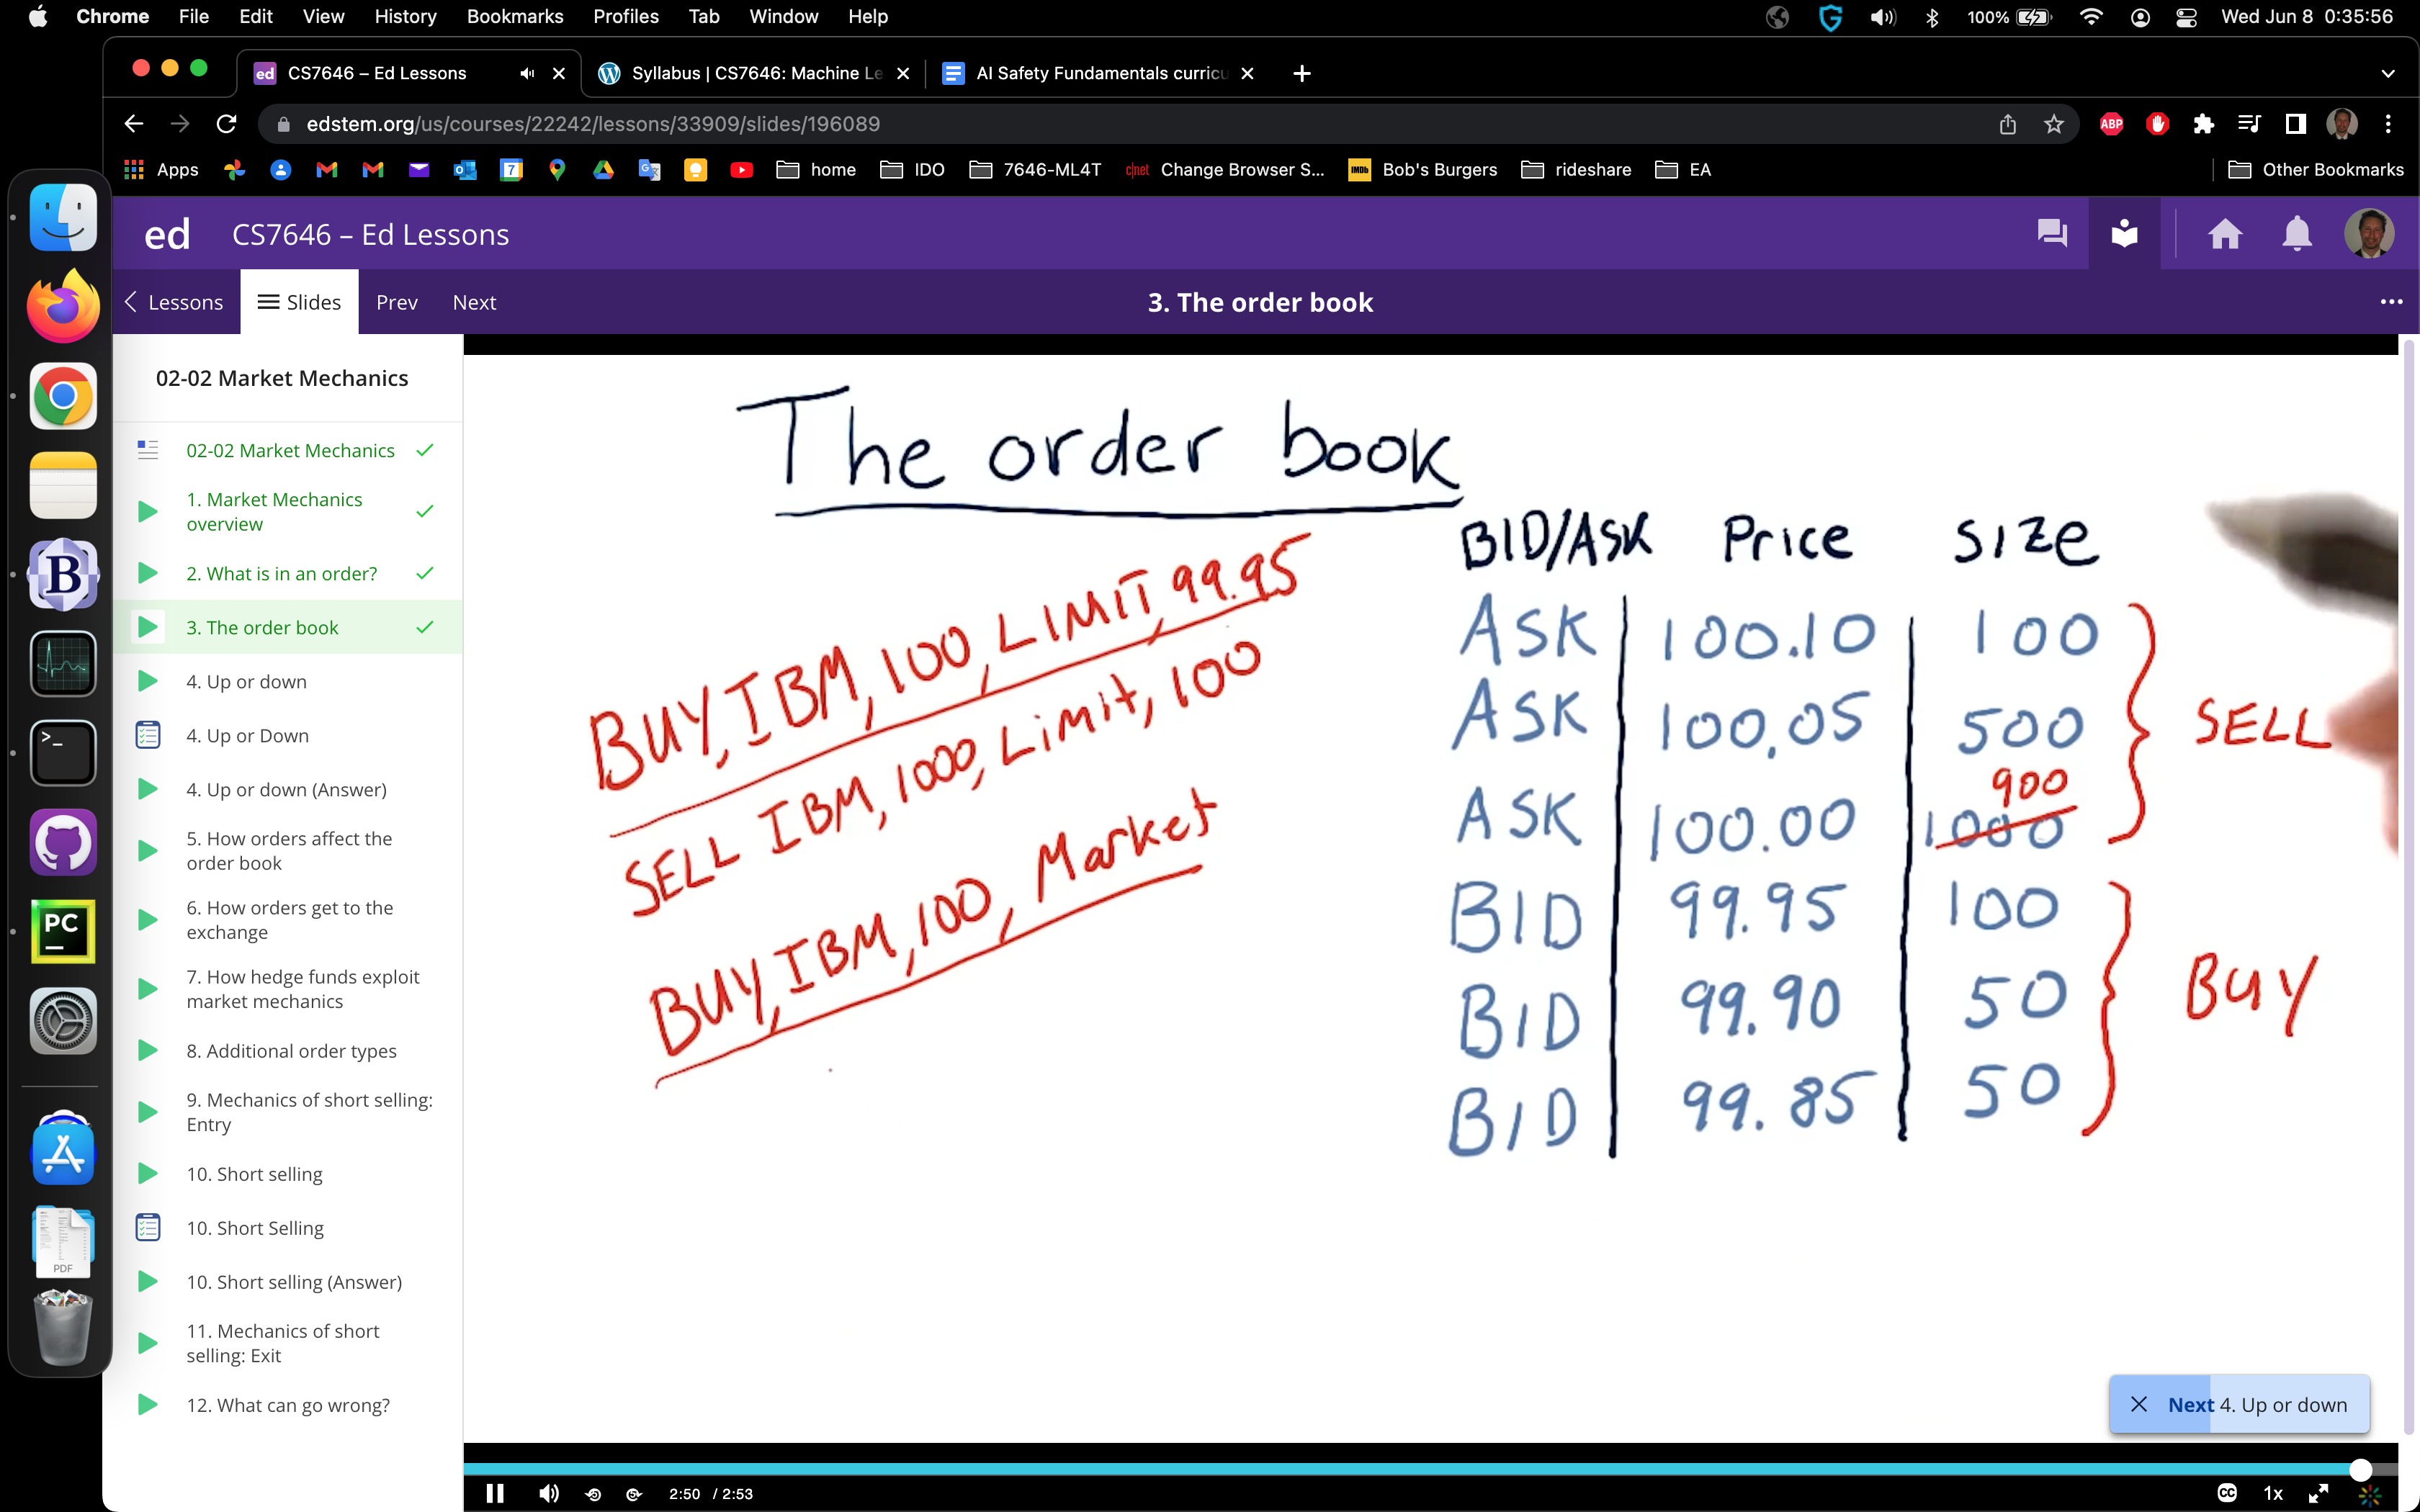 Chrome File Edit View History Bookmarks Profiles Tab Window Help 100% Wed Jun 8 0:35:56
ed CS7646 – Ed Lessons Syllabus | CS7646: Machine Le AI Safety Fundamentals curricu
edstem.org/us/courses/22242/lessons/33909/slides/196089 ABP
Apps 7 home IDO 7646-ML4T c|net Change Browser S... IMDb Bob's Burgers rideshare EA Other Bookmarks
ed CS7646 – Ed Lessons
Lessons Slides Prev Next 3. The order book
02-02 Market Mechanics
02-02 Market Mechanics
1. Market Mechanics
overview
2. What is in an order?
3. The order book
4. Up or down
4. Up or Down
4. Up or down (Answer)
5. How orders affect the
order book
6. How orders get to the
exchange
7. How hedge funds exploit
market mechanics
8. Additional order types
9. Mechanics of short selling:
Entry
10. Short selling
10. Short Selling
10. Short selling (Answer)
11. Mechanics of short
selling: Exit
12. What can go wrong?
The order book
BUY, IBM, 100, LIMIT, 99.95
SELL IBM, 1000, Limit, 100
BUY, IBM, 100, Market
BID/ASK Price SIZE
ASK 100.10 100
ASK 100.05 500
900
ASK 100.00 1000
BID 99.95 100
BID 99.90 50
BID 99.85 50
SELL
BUY
Next 4. Up or down
2:50 / 2:53 CC 1x
B
>_
PC
PDF